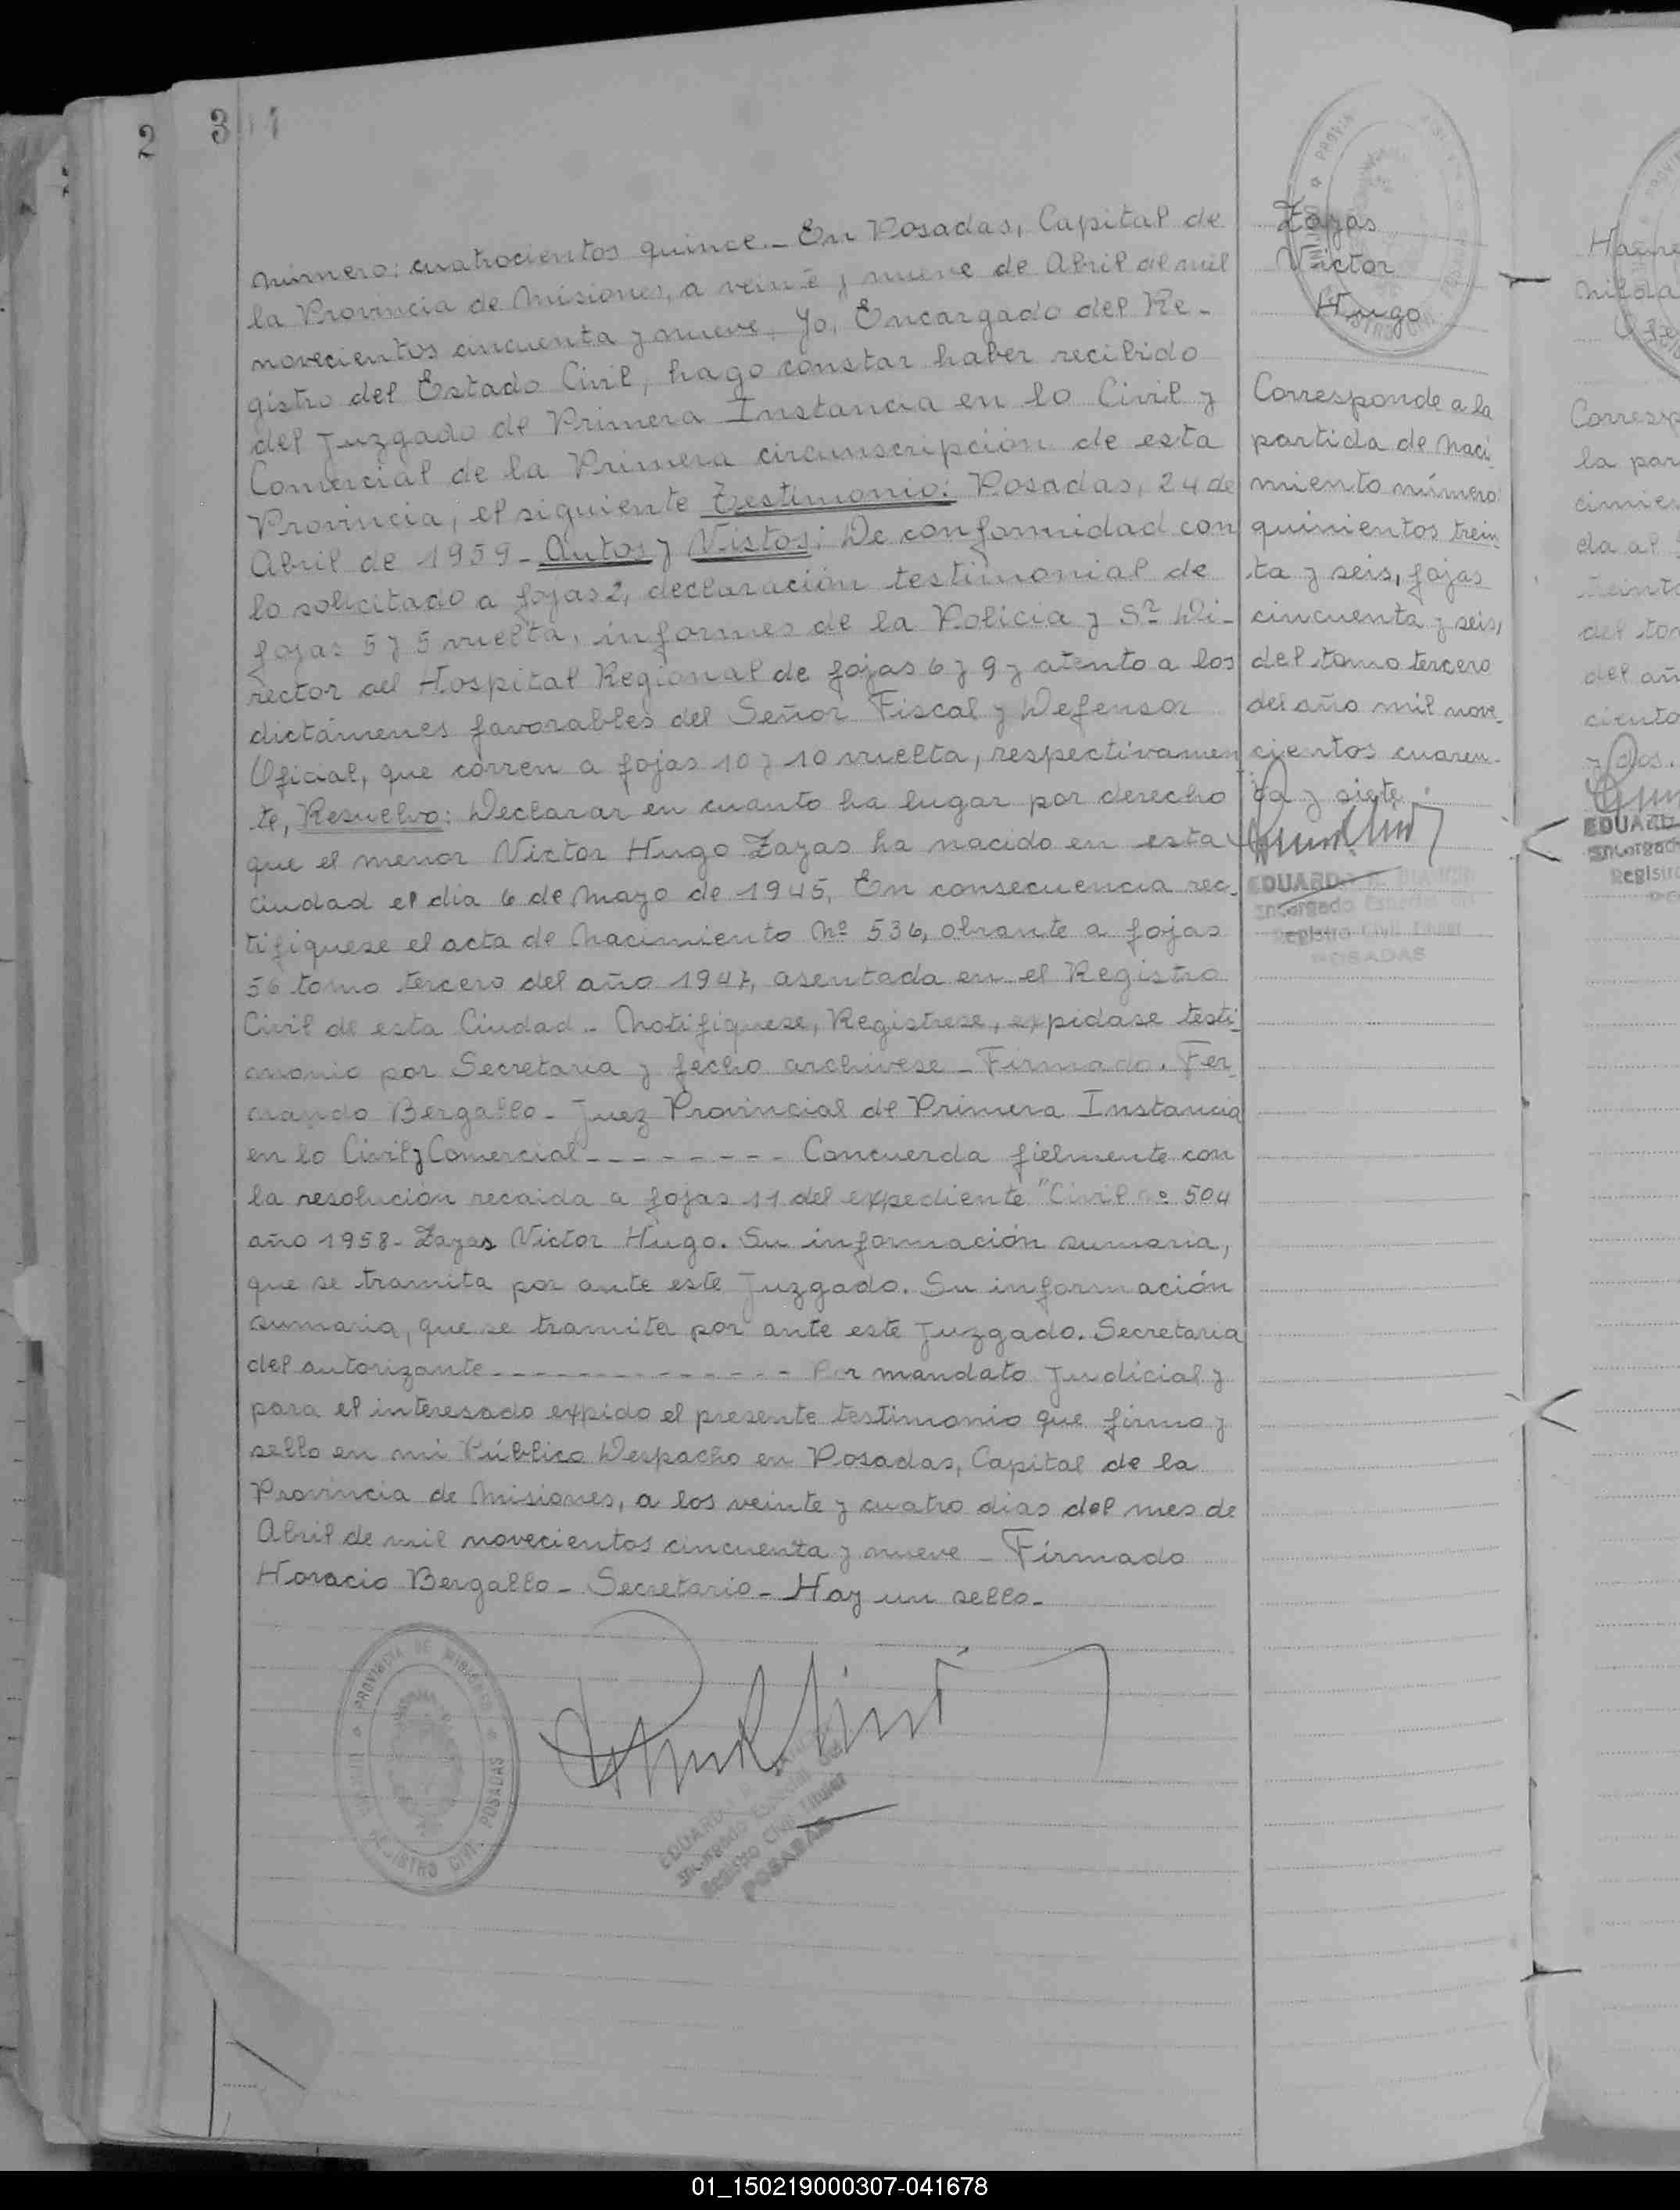 2
3
Número: cuatrocientos quince._ En Posadas, Capital de
la Provincia de Misiones, a veinte y nueve de Abril de mil
novecientos cincuenta y nueve, Yo, Encargado del Re_
gistro del Estado Civil, hago constar haber recibido
del Juzgado de Primera Instancia en lo Civil y
Comercial de la Primera circunscripción de esta
Provincia, el siguiente Testimonio: Posadas, 24 de
Abril de 1959_ Autos y Vistos: De conformidad con
lo solicitado a fojas 2, declaración testimonial de
fojas 5 y 5 vuelta, informes de la Policia y Sr Di_
rector del Hospital Regional de fojas 6 y 9 y atento a los
dictámenes favorables del Señor Fiscal y Defensor
Oficial, que corren a fojas 10 y 10 vuelta, respectivamen
te, Resuelvo: Declarar en cuanto ha lugar por derecho
que el menor Victor Hugo Zayas ha nacido en esta
Ciudad el dia 6 de Mayo de 1945, En consecuencia rec_
tifiquese el acta de Nacimiento Nº 536, obrante a fojas
56 tomo tercero del año 1947, asentada en el Registro
Civil de esta Ciudad._ Notifiquese, Registrese, expidase testi_
monio por Secretaria y fecho archivese_ Firmado. Fer_
nando Bergallo_ Juez Provincial de Primera Instancia
en lo Civil y Comercial_ _ _ _ _ _ _ _ _ Concuerda fielmente con
la resolución recaida a fojas 11 del expediente "Civil nº 504
año 1958_ Zayas Victor Hugo. Su información sumaria,
que se tramita por ante este Juzgado. Su información
sumaria, que se tramita por ante este Juzgado. Secretaria
del autorizante_ _ _ _ _ _ _ _ _ _ _ _ _ _ Por mandato Judicial y
para el interesado expido el presente testimonio que firmo y
sello en mi Público Despacho en Posadas, Capital de la
Provincia de Misiones, a los veinte y cuatro dias del mes de
Abril de mil novecientos cincuenta y nueve_ Firmado
Horacio Bergallo_ Secretario_ Hay un sello_
PROVINCIA DE MISIONES
REGISTRO CIVIL POSADAS
EDUARDO
Encargado Especial del
Registro Civil Titular
POSADAS
Zayas
Victor
Hugo
Corresponde a la
partida de Naci_
miento número:
quinientos trein
ta y seis, fojas
cincuenta y seis,
del tomo tercero
del año mil nove_
cientos cuaren_
ta y siete.
EDUARDO
Encargado Especial del
Registro Civil Titular
POSADAS
la par
cimien
da al
del
del añ
y dos.
EDUARD
Encargad
Registro
01_150219000307-041678